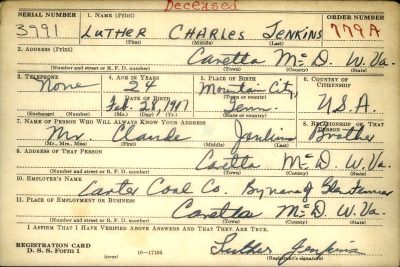 Deceased
SERIAL NUMBER 1. NAME (Print) ORDER NUMBER
3991 LUTHER CHARLES JENKINS 779A
(First) (Middle) (Last)
2. ADDRESS (Print)
Caretta McD. W. Va.
(Number and street or R. F. D. number) (Town) (County) (State)
3. TELEPHONE 4. AGE IN YEARS 5. PLACE OF BIRTH 6. COUNTRY OF CITIZENSHIP
None 24 Mountain City,
DATE OF BIRTH (Town or county)
Feb. 28, 1917 Tenn. U.S.A.
(Exchange) (Number) (Mo.) (Day) (Yr.) (State or country)
7. NAME OF PERSON WHO WILL ALWAYS KNOW YOUR ADDRESS 8. RELATIONSHIP OF THAT PERSON
Mr. Claude Jenkins Brother
(Mr., Mrs., Miss) (First) (Middle) (Last)
9. ADDRESS OF THAT PERSON
Caretta McD. W. Va.
(Number and street or R. F. D. number) (Town) (County) (State)
10. EMPLOYER'S NAME
Carter Coal Co.
11. PLACE OF EMPLOYMENT OR BUSINESS
Caretta McD. W. Va.
(Number and street or R. F. D. number) (Town) (County) (State)
I AFFIRM THAT I HAVE VERIFIED ABOVE ANSWERS AND THAT THEY ARE TRUE.
REGISTRATION CARD
D. S. S. Form 1 (over) 16—17105 Luther Jenkins
(Registrant's signature)